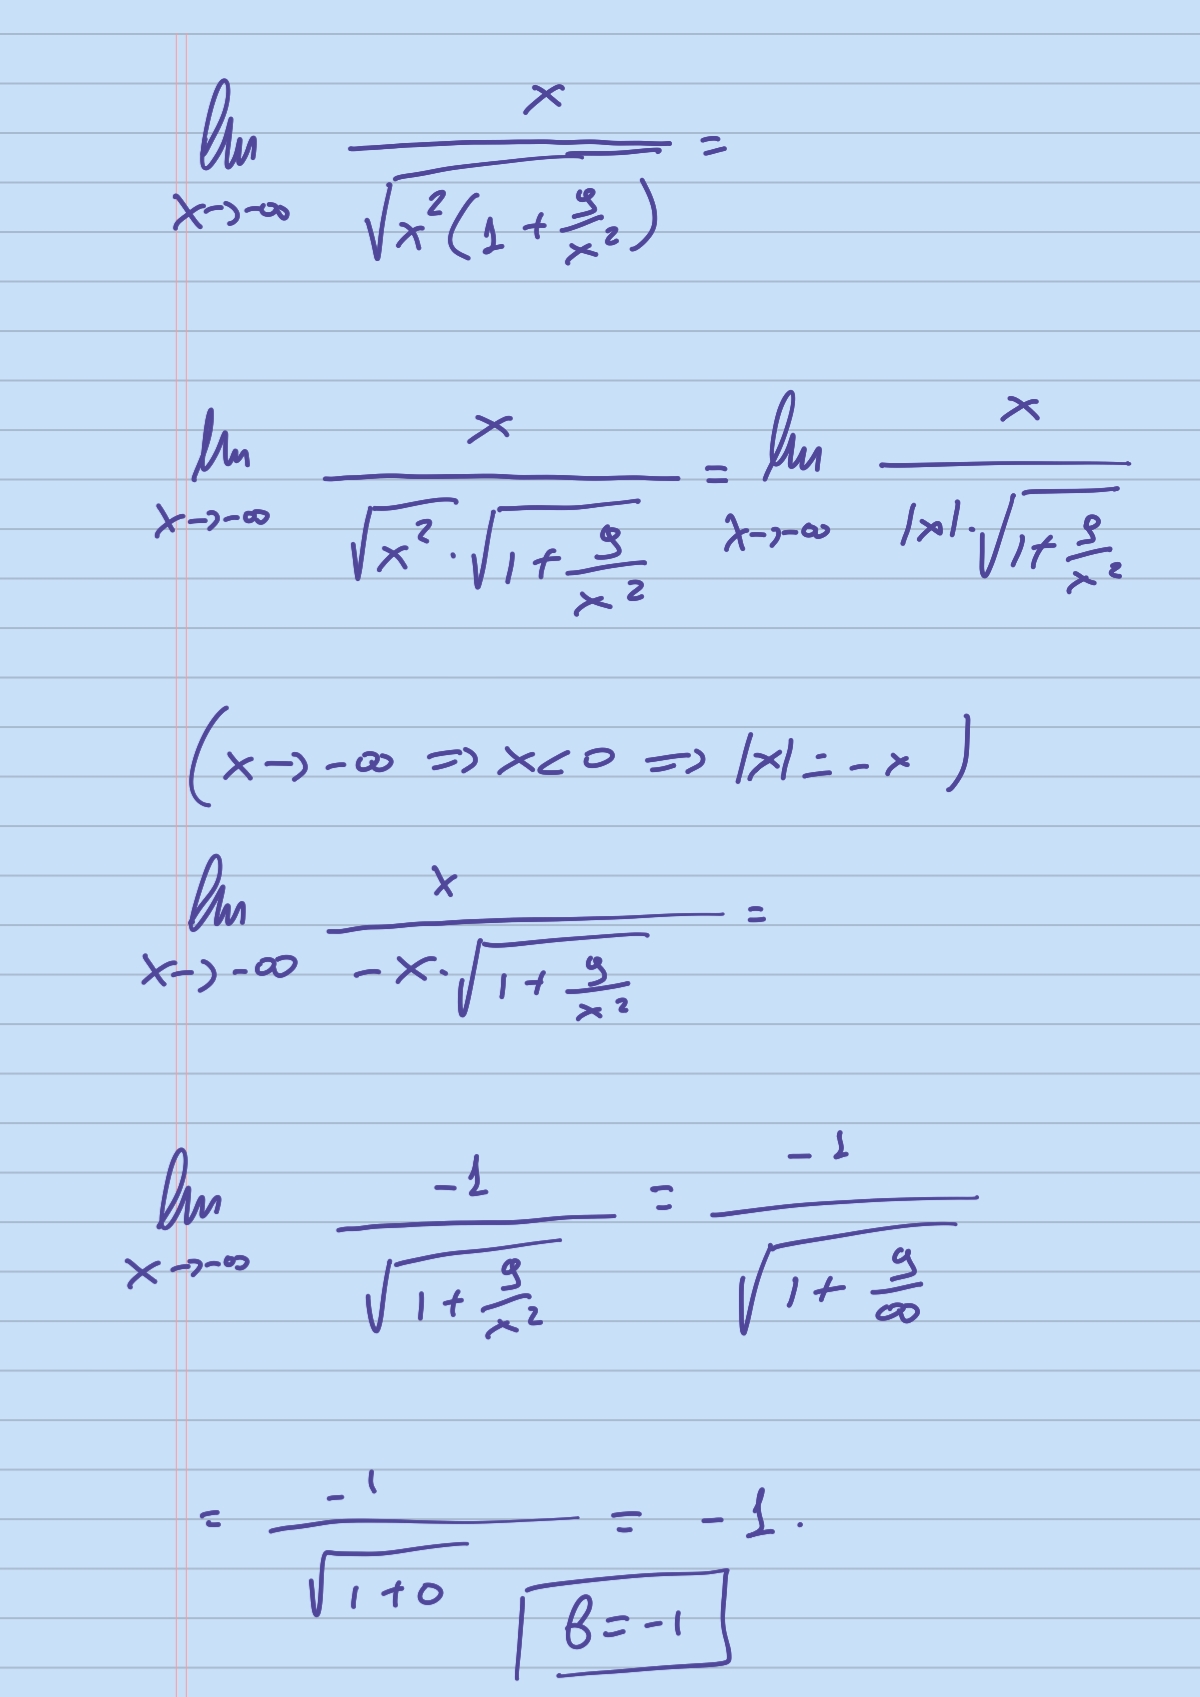 lim x→-∞ x / √(x²(1 + 9/x²)) =
lim x→-∞ x / (√x² · √(1 + 9/x²)) = lim x→-∞ x / (|x| · √(1 + 9/x²))
(x→-∞ ⇒ x<0 ⇒ |x| = -x)
lim x→-∞ x / (-x · √(1 + 9/x²)) =
lim x→-∞ -1 / √(1 + 9/x²) = -1 / √(1 + 9/∞)
= -1 / √(1+0) = -1.
B = -1